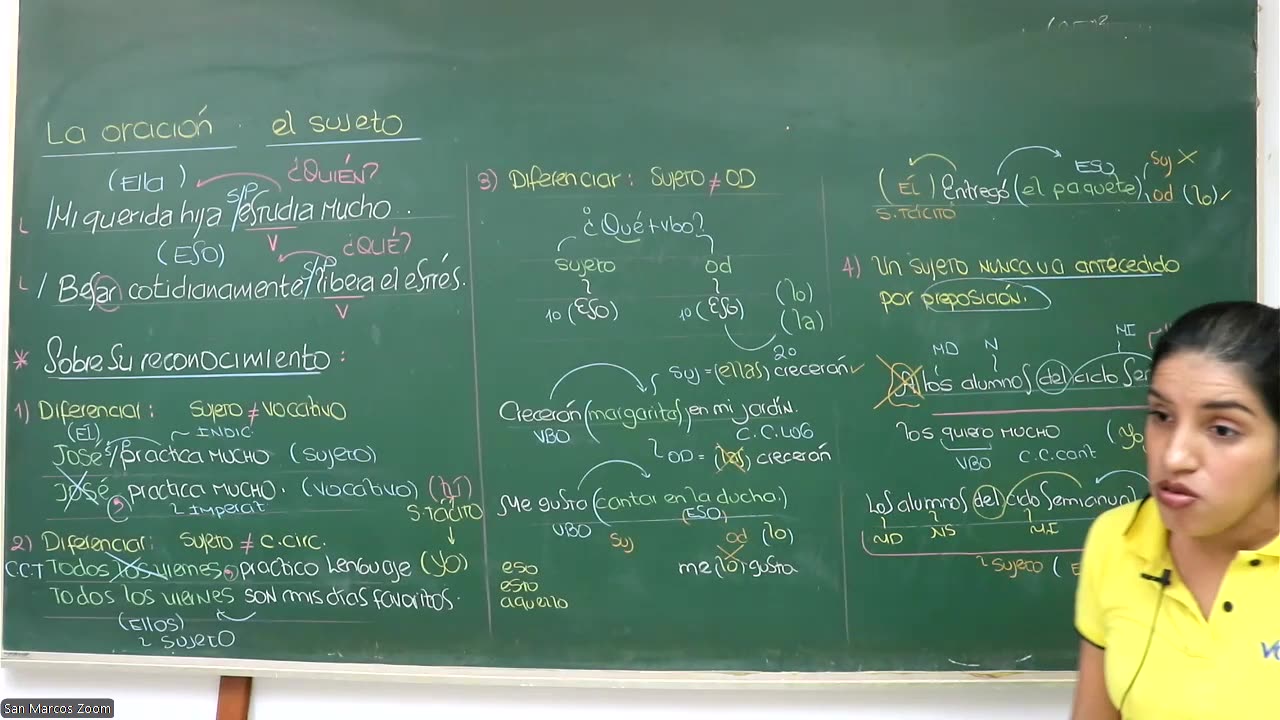 La oración el sujeto
(Ella) ¿QUIÉN?
S/P
Mi querida hija / estudia mucho.
V
(ESO) ¿QUÉ?
S/P
Besar cotidianamente / libera el estrés.
V
* Sobre su reconocimiento:
1) Diferenciar: sujeto ≠ vocativo
(Él) INDIC.
José S/P practica mucho (sujeto)
José, practica mucho. (vocativo) (tú)
Imperat. S. TÁCITO
2) Diferenciar: sujeto ≠ C.circ.
C.C.T Todos los viernes, practico Lenguaje (yo)
Todos los viernes son mis días favoritos.
(Ellos)
sujeto
3) Diferenciar: Sujeto ≠ OD
¿Qué + vbo?
sujeto od
1o (ESO) 1o (ESO) (lo)
(la)
2o
suj = (ellas) crecerán ✓
Crecerán (margaritas) en mi jardín.
VBO C.C.LUG
OD = (las) crecerán
Me gusta (cantar en la ducha.)
(ESO)
VBO suj od (lo)
eso me (lo) gusta
esto
aquello
ESO Suj X
(Él) Entregó (el paquete) od (lo) ✓
S. TÁCITO
4) Un sujeto nunca va antecedido
por preposición.
MD N MI
A los alumnos del ciclo
los quiero mucho
VBO C.C.cant
Los alumnos del ciclo Semianual
MD NS MI
sujeto (
San Marcos Zoom